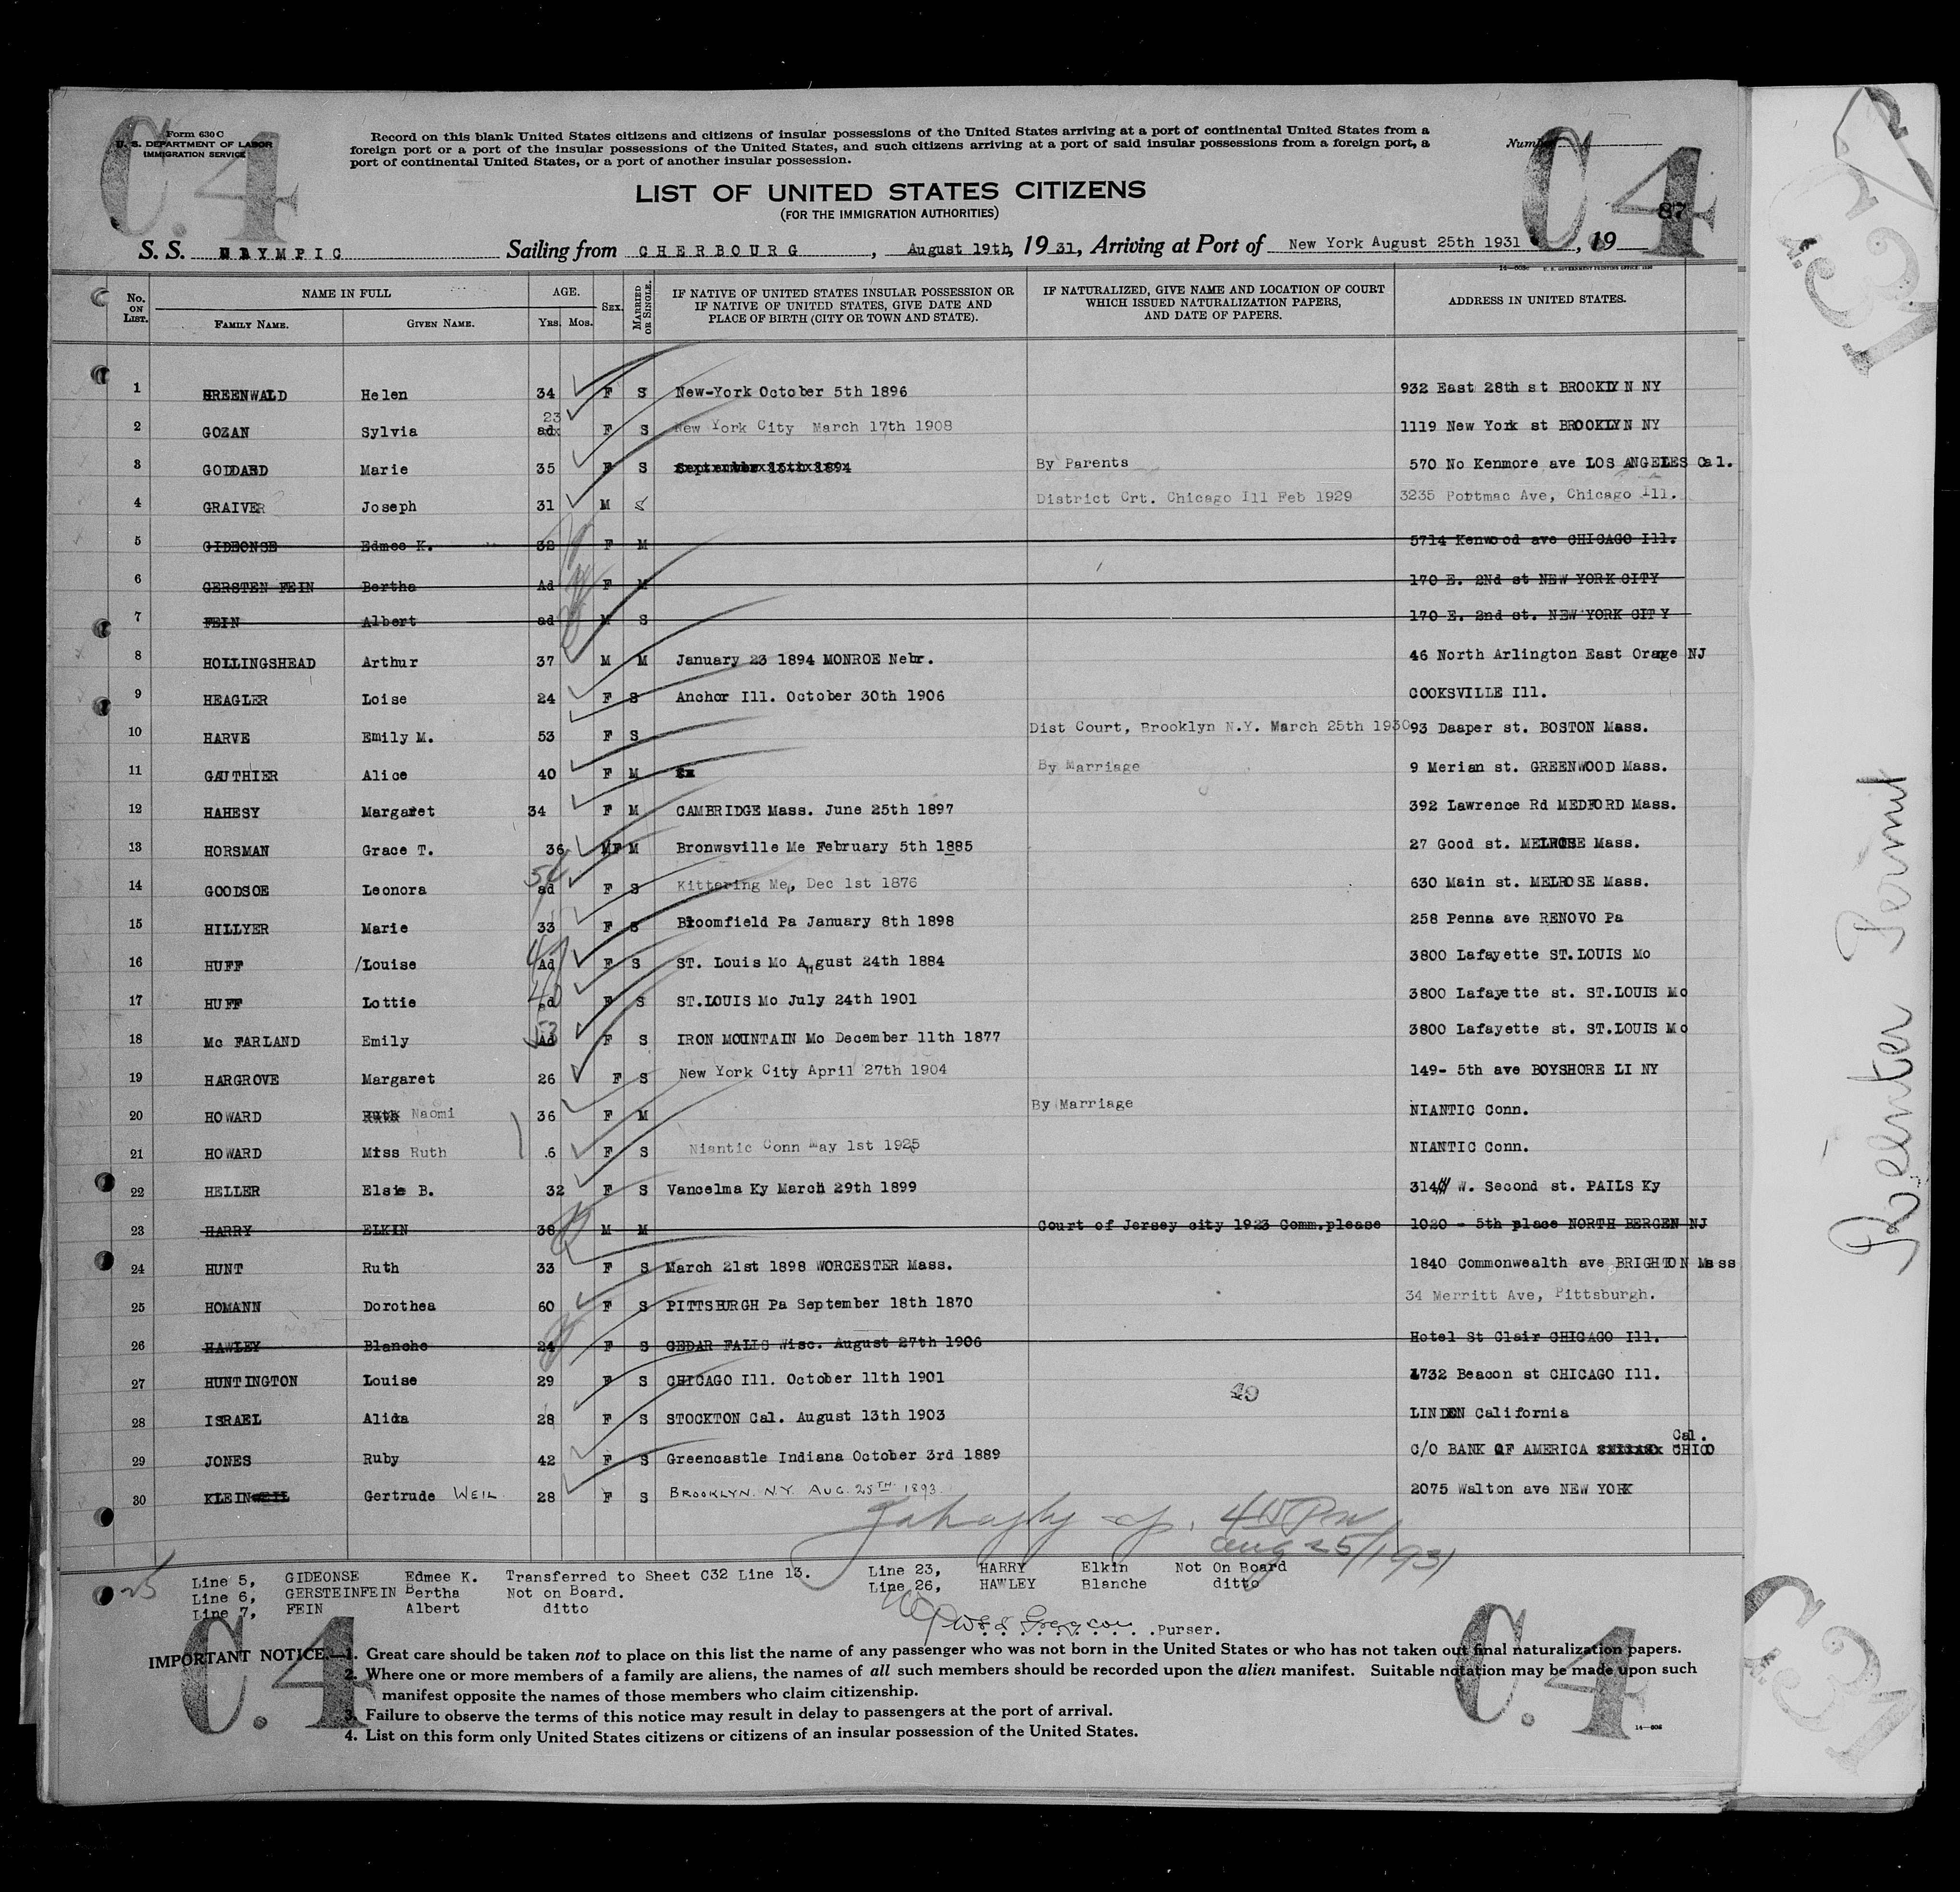 C.4
Form 630 C
U. S. DEPARTMENT OF LABOR
IMMIGRATION SERVICE
Record on this blank United States citizens and citizens of insular possessions of the United States arriving at a port of continental United States from a
foreign port or a port of the insular possessions of the United States, and such citizens arriving at a port of said insular possessions from a foreign port, a
port of continental United States, or a port of another insular possession.
Number
C.4
87
LIST OF UNITED STATES CITIZENS
(FOR THE IMMIGRATION AUTHORITIES)
S. S. OLYMPIC Sailing from CHERBOURG, August 19th, 19 31, Arriving at Port of New York August 25th 1931, 19
No. ON LIST. NAME IN FULL FAMILY NAME. GIVEN NAME. AGE. YRS. MOS. SEX. MARRIED OR SINGLE. IF NATIVE OF UNITED STATES INSULAR POSSESSION OR IF NATIVE OF UNITED STATES, GIVE DATE AND PLACE OF BIRTH (CITY OR TOWN AND STATE). IF NATURALIZED, GIVE NAME AND LOCATION OF COURT WHICH ISSUED NATURALIZATION PAPERS, AND DATE OF PAPERS. ADDRESS IN UNITED STATES.
1 GREENWALD Helen 34 F S New-York October 5th 1896 932 East 28th st BROOKLYN NY
2 GOZAN Sylvia 23 ad F S New York City March 17th 1908 1119 New York st BROOKLYN NY
3 GODDARD Marie 35 F S September 15th 1894 By Parents 570 No Kenmore ave LOS ANGELES Cal.
4 GRAIVER Joseph 31 M S District Crt. Chicago Ill Feb 1929 3235 Potmac Ave, Chicago Ill.
5 GIDEONSE Edmee K. 32 F M 5714 Kenwood ave CHICAGO Ill.
6 GERSTEN FEIN Bertha Ad F M 170 E. 2Nd st NEW YORK CITY
7 FEIN Albert ad M S 170 E. 2nd st. NEW YORK CITY
8 HOLLINGSHEAD Arthur 37 M M January 23 1894 MONROE Nebr. 46 North Arlington East Orange NJ
9 HEAGLER Loise 24 F S Anchor Ill. October 30th 1906 COOKSVILLE Ill.
10 HARVE Emily M. 53 F S Dist Court, Brooklyn N.Y. March 25th 1930 93 Daaper st. BOSTON Mass.
11 GAUTHIER Alice 40 F M By Marriage 9 Merian st. GREENWOOD Mass.
12 HAHESY Margaret 34 F M CAMBRIDGE Mass. June 25th 1897 392 Lawrence Rd MEDFORD Mass.
13 HORSMAN Grace T. 36 MF M Bronwsville Me February 5th 1885 27 Good st. MELROSE Mass.
14 GOODSOE Leonora 54 ad F S Kittering Me, Dec 1st 1876 630 Main st. MELROSE Mass.
15 HILLYER Marie 33 F S Bloomfield Pa January 8th 1898 258 Penna ave RENOVO Pa
16 HUFF Louise 47 Ad F S ST. Louis Mo August 24th 1884 3800 Lafayette ST.LOUIS Mo
17 HUFF Lottie 40 ad F S ST.LOUIS Mo July 24th 1901 3800 Lafayette st. ST.LOUIS Mo
18 Mc FARLAND Emily 53 Ad F S IRON MOUNTAIN Mo December 11th 1877 3800 Lafayette st. ST.LOUIS Mo
19 HARGROVE Margaret 26 F S New York City April 27th 1904 149- 5th ave BOYSHORE LI NY
20 HOWARD Ruth Naomi 36 F M By Marriage NIANTIC Conn.
21 HOWARD Miss Ruth .6 F S Niantic Conn May 1st 1925 NIANTIC Conn.
22 HELLER Elsie B. 32 F S Vancelma Ky March 29th 1899 314 W. Second st. PAILS Ky
23 HARRY ELKIN 38 M M Court of Jersey city 1923 Comm.please 1020 - 5th place NORTH BERGEN NJ
24 HUNT Ruth 33 F S March 21st 1898 WORCESTER Mass. 1840 Commonwealth ave BRIGHTON Mass
25 HOMANN Dorothea 60 F S PITTSBURGH Pa September 18th 1870 34 Merritt Ave, Pittsburgh.
26 HAWLEY Blanche 24 F S CEDAR FALLS Wisc. August 27th 1906 Hotel St Clair CHICAGO Ill.
27 HUNTINGTON Louise 29 F S CHICAGO Ill. October 11th 1901 1732 Beacon st CHICAGO Ill.
49
28 ISRAEL Alida 28 F S STOCKTON Cal. August 13th 1903 LINDEN California
29 JONES Ruby 42 F S Greencastle Indiana October 3rd 1889 C/O BANK OF AMERICA CHICO Cal.
30 KLEINWEIL Gertrude WEIL 28 F S BROOKLYN. N.Y. AUG. 25TH 1893 2075 Walton ave NEW YORK
415 PM
Aug 25/1931
25
Line 5, GIDEONSE Edmee K. Transferred to Sheet C32 Line 13.
Line 6, GERSTEINFEIN Bertha Not on Board.
Line 7, FEIN Albert ditto
Line 23, HARRY Elkin Not On Board
Line 26, HAWLEY Blanche ditto
Purser.
IMPORTANT NOTICE.—1. Great care should be taken not to place on this list the name of any passenger who was not born in the United States or who has not taken out final naturalization papers.
2. Where one or more members of a family are aliens, the names of all such members should be recorded upon the alien manifest. Suitable notation may be made upon such
manifest opposite the names of those members who claim citizenship.
3. Failure to observe the terms of this notice may result in delay to passengers at the port of arrival.
4. List on this form only United States citizens or citizens of an insular possession of the United States.
C.4
C.4
14—606
Reenter Permit